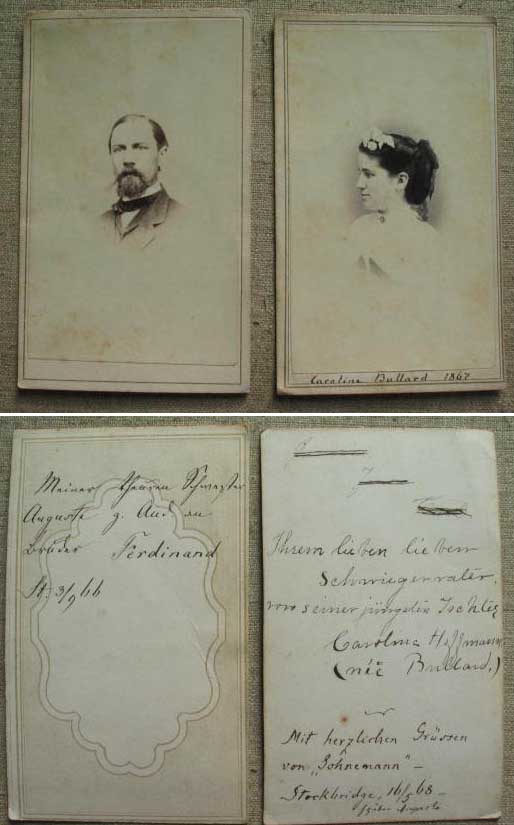 Caroline Bullard 1867
Meiner theuren Schwester
Auguste z. And. an
Bruder Ferdinand
St. 3/9 66
Ihrem lieben lieben
Schwiegervater,
von seiner jüngsten Tochter
Caroline Hoffmann
(née Bullard.)
Mit herzlichen Grüssen
von "Söhnemann" –
Stockbridge, 16/5 68 –
Auguste